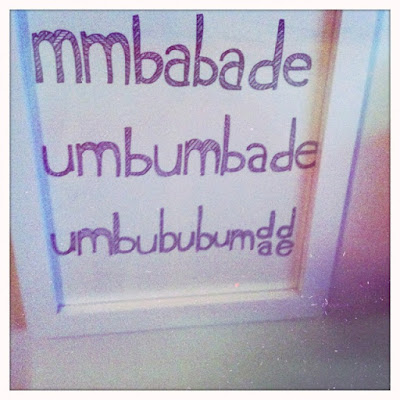 mmbabade
umbumbade
umbububumddae